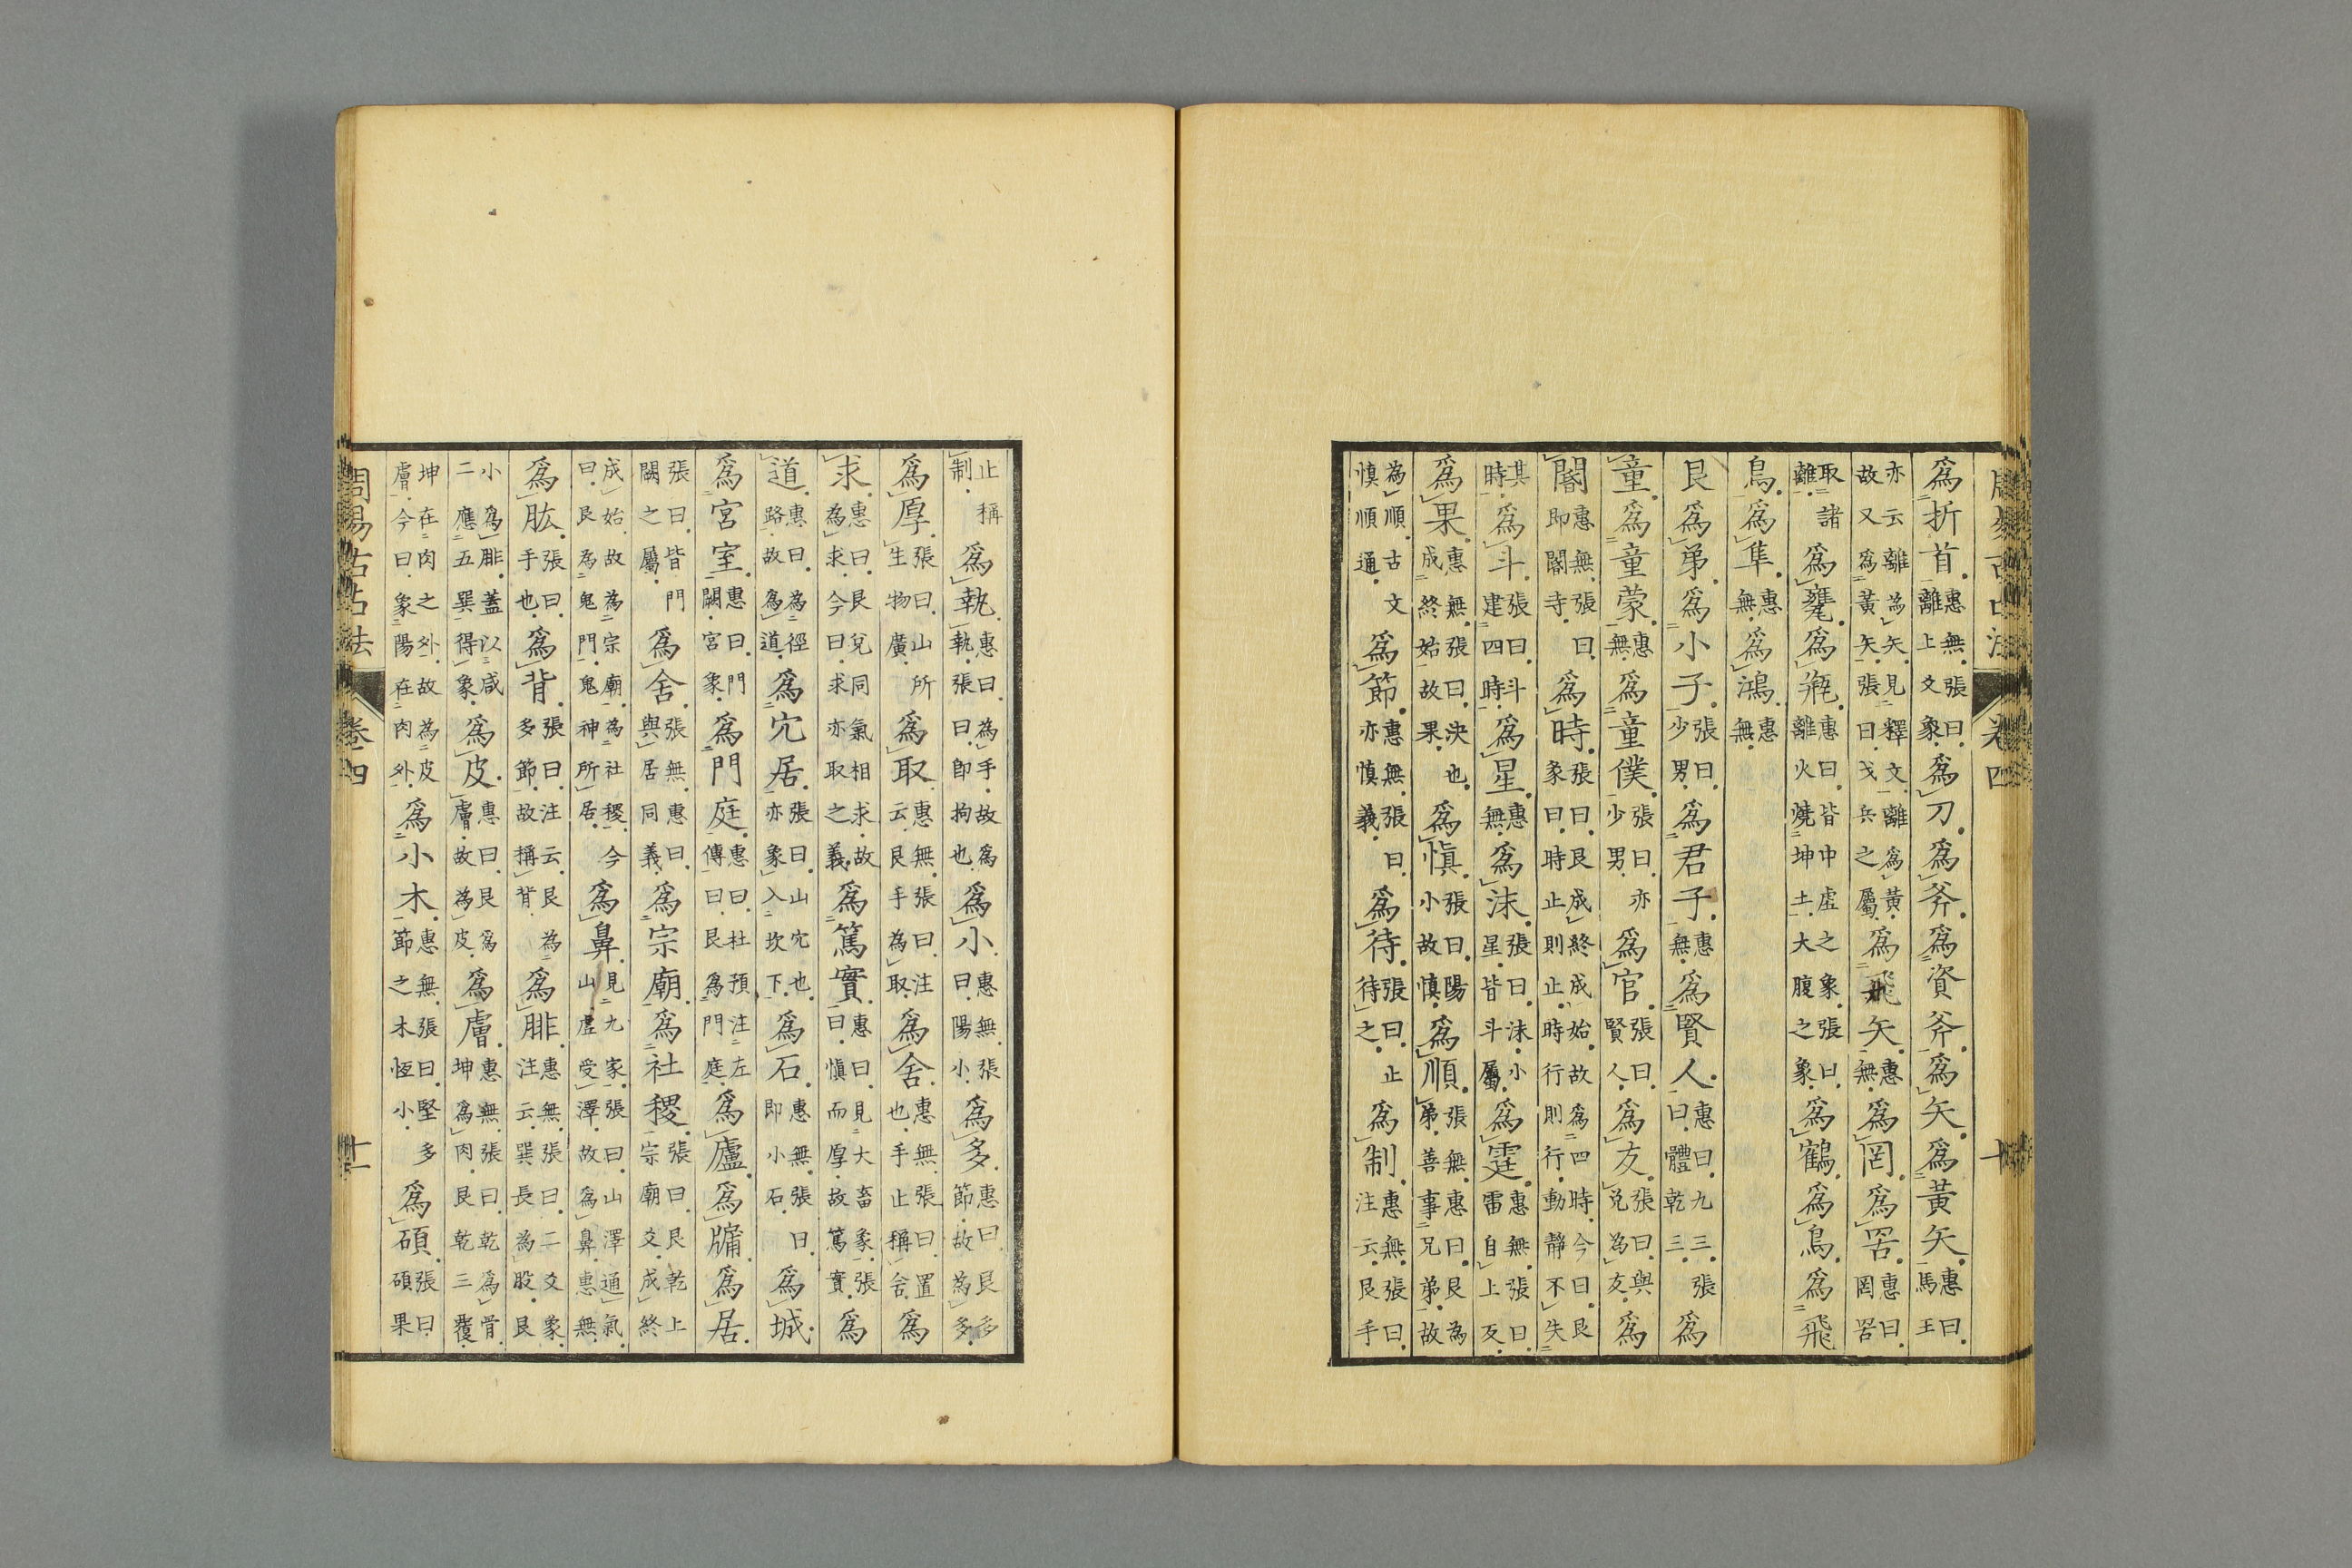 周易古占法 卷四 十
爲折首惠無張曰離上爻象爲刀爲斧爲資斧爲矢爲黃矢惠曰馬王
亦云離為矢見釋文離爲黃故又爲黃矢張曰戈兵之屬爲飛矢惠無爲罔爲罟惠曰罔罟
取諸離爲甕爲瓶惠曰皆中虛之象張曰離火燒坤土大腹之象爲鶴爲鳥爲飛
鳥爲隼惠無爲鴻惠無
艮爲弟爲小子張曰少男爲君子惠無爲賢人惠曰九三張曰體乾三爲
童爲童蒙惠無爲童僕張曰亦少男爲官張曰賢人爲友張曰與兌為友爲
閽惠無張曰即閽寺爲時張曰艮成終成始故為四時今曰艮象曰時止則止時行則行動靜不失
其時爲斗張曰斗建四時爲星惠無爲沬張曰沬小星皆斗屬爲霆惠無張曰雷自上反
爲果惠無張曰決也成終始故果爲愼張曰陽小故慎爲順張無惠曰艮為弟善事兄弟故
為順古文慎順通爲節惠無張曰亦慎義爲待張曰止待之爲制惠無張曰注云艮手
止稱制爲執惠曰為手故爲執張曰即拘也爲小惠無張曰陽小爲多惠曰艮多節故為多
爲厚張曰山所生物廣爲取惠無張曰注云艮手為取爲舍惠無張曰置也手止稱舍爲
求惠曰艮兌同氣相求故為求今曰求亦取之義爲篤實惠曰見大畜象張曰愼而厚故篤實爲
道惠曰為徑路故爲道爲宂居張曰山宂也亦象入坎下爲石惠無張曰即小石爲城
爲宮室惠曰門闕宮象爲門庭惠曰杜預注左傳曰艮爲門庭爲廬爲牖爲居
張曰皆門闕之屬爲舍張無惠曰與居同義爲宗廟爲社稷張曰艮乾上宗廟爻成終
成始故為宗廟為社稷今曰艮為鬼門鬼神所居爲鼻見九家張曰山澤通氣山虛受澤故爲鼻惠無
爲肱張曰手也爲背張曰注云艮為多節故稱背爲腓惠無張曰二爻象注云巽長為股艮
小爲腓蓋以咸二應五巽得象爲皮惠曰艮爲膚故為皮爲膚惠無張曰乾爲骨坤爲肉艮乾三覆
坤在肉之外故為皮膚今曰象陽在肉外爲小木惠無張曰堅多節之木恆小爲碩張曰碩果
周易古占法 卷四 十一